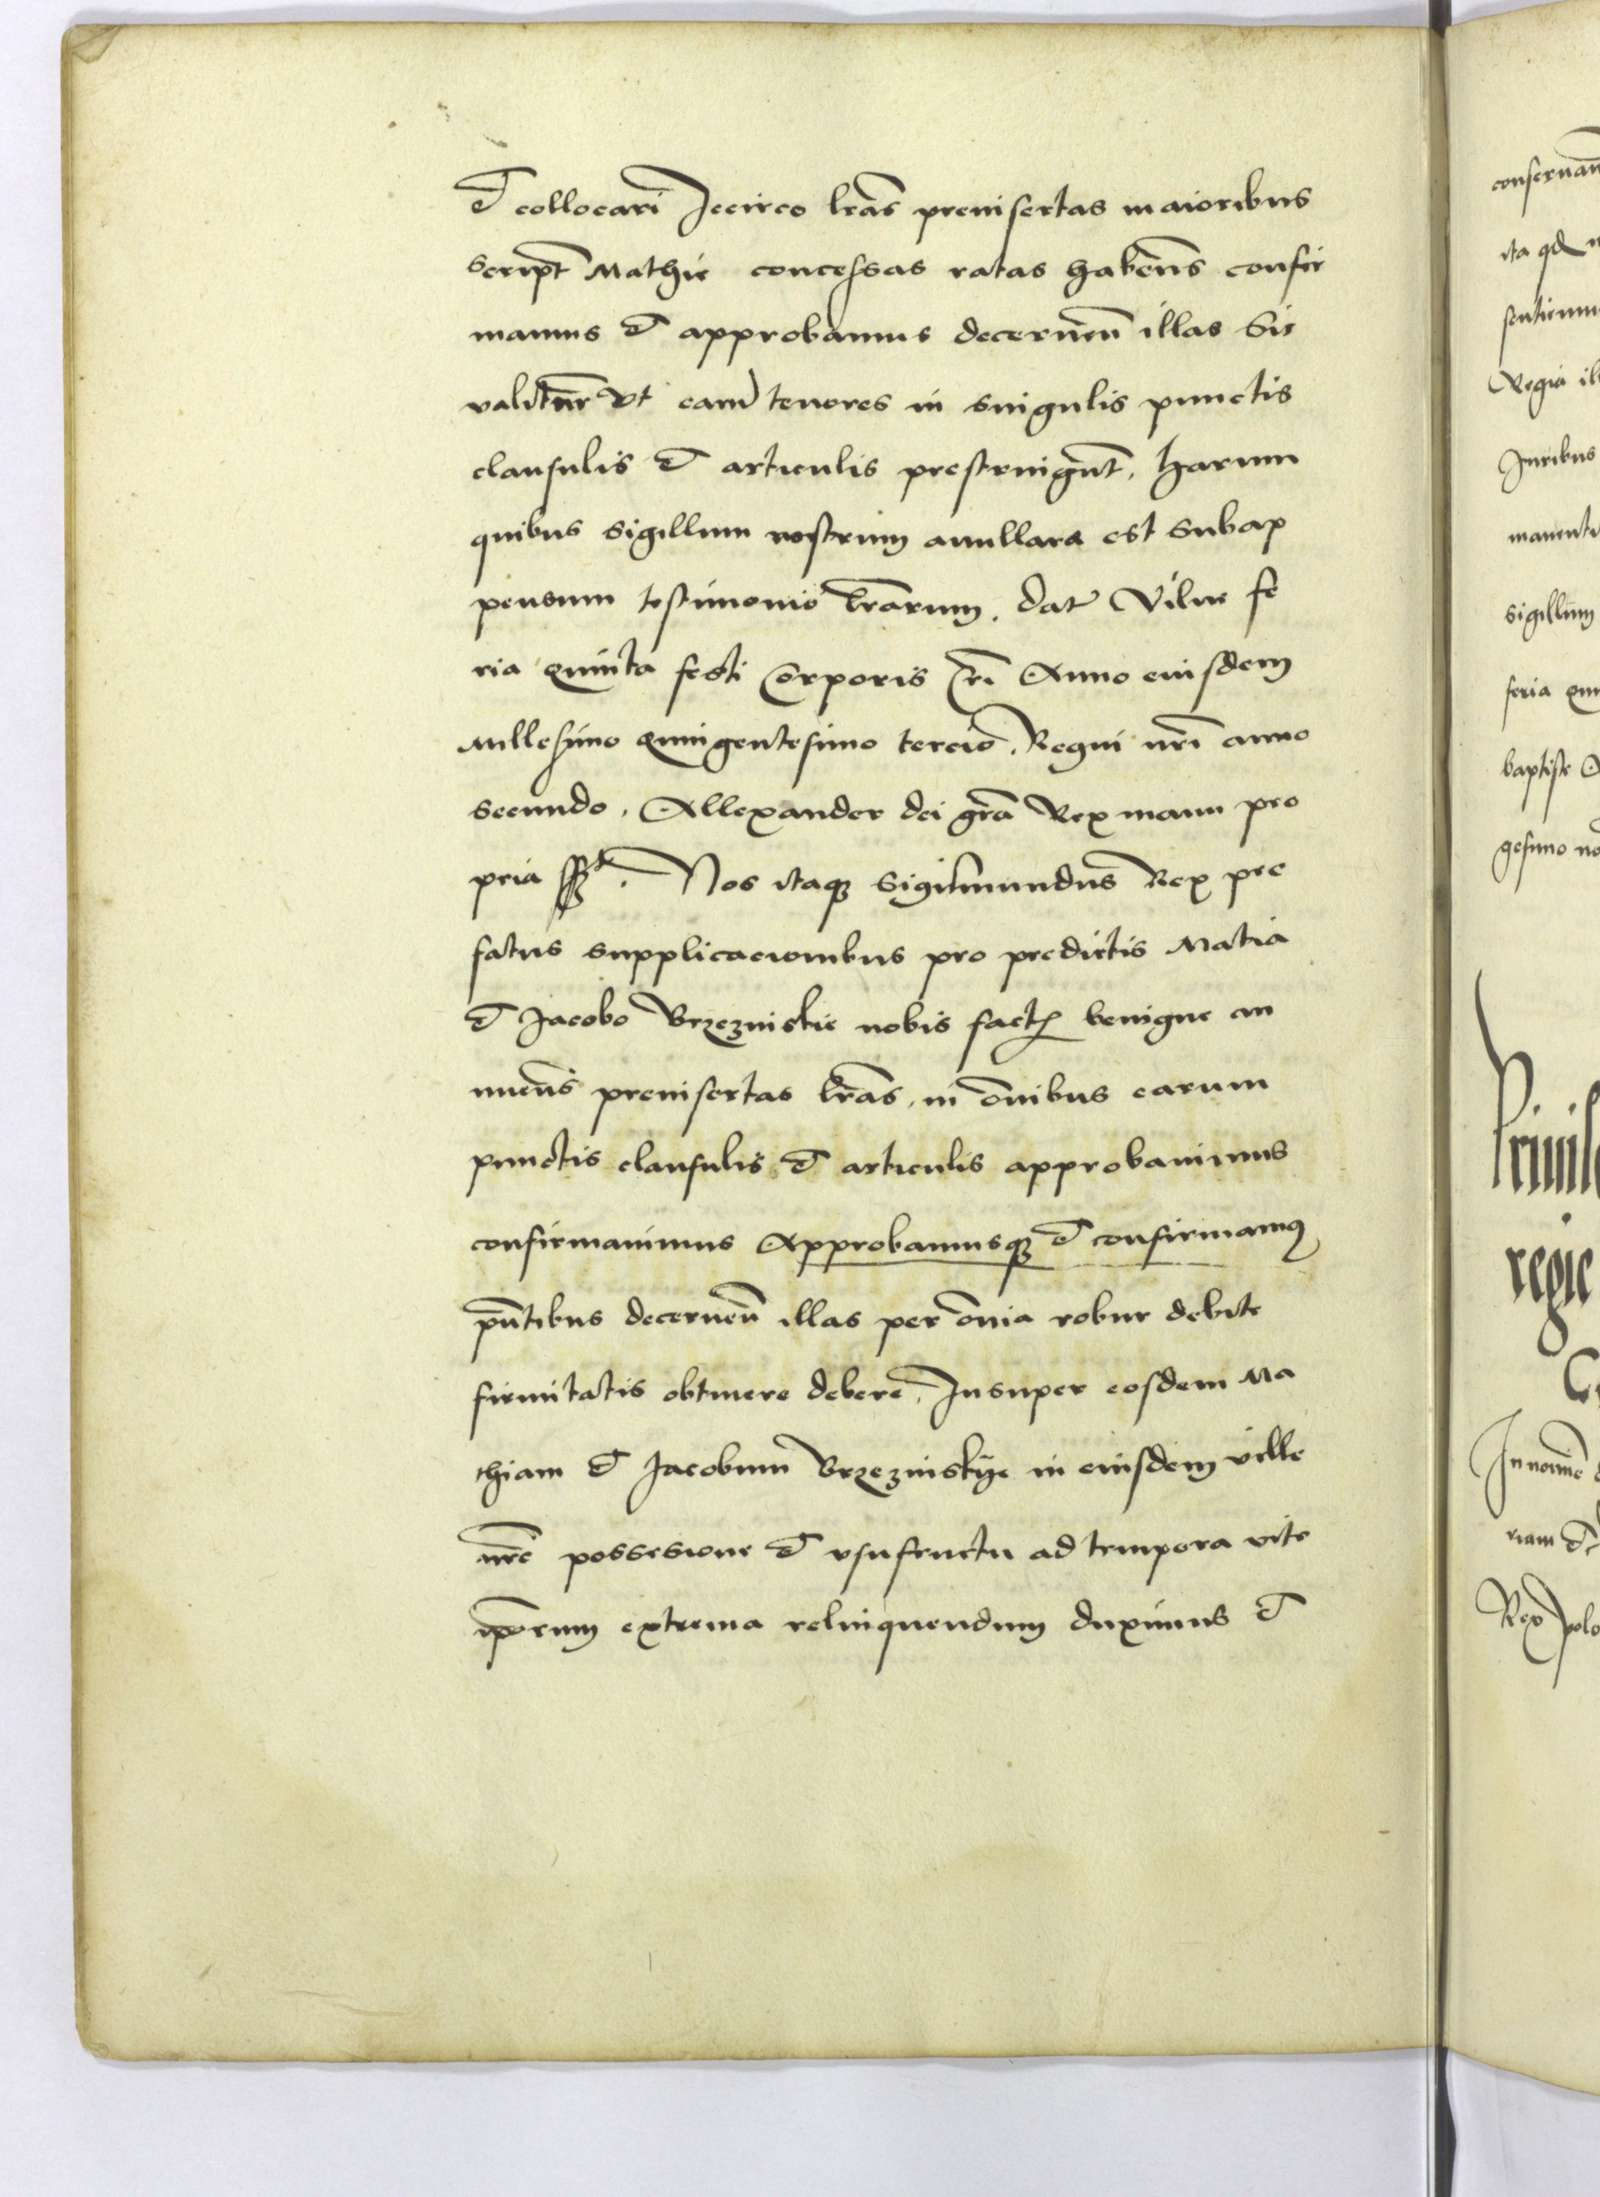 et collocari Iccirco lras preinsertas maioribus
script Mathie concessas ratas habens confir
mamus et approbamus decernen illas sic
valitur vt earum tenores in singulis punctis
clausulis et articulis prestringunt. harum
quibus sigillum nostrum annullare est subap
pensum testimonio lrarum. dat Vilne fe
ria quinta festi Corporis Cri Anno eiusdem
Millesimo quingentesimo tercio. Regni nri anno
secundo. Allexander dei gra Rex manu pro
pria sspt. Nos itaq Sigismundus Rex pre
fatus supplicacionibus pro predictis Matia
et Jacobo Brzezinskie nobis fact benigne an
nuens preinsertas lras in omibus earum
punctis clausulis et articulis approbauimus
confirmauimus Approbamusq et confirmamus
pntibus decernen illas per omia robur debite
firmitatis obtinere debere. Insuper eosdem Ma
thiam et Jacobum Brzezinskye in eiusdem ville
nre possesione et vsufructu ad tempora vite
iporum extrema relinquendum duximus et
conseruan
ita qd
Regia
Iuribus
sigillum
feria
baptiste
gesimo
Priuil
regie
In nomine
Rex polo